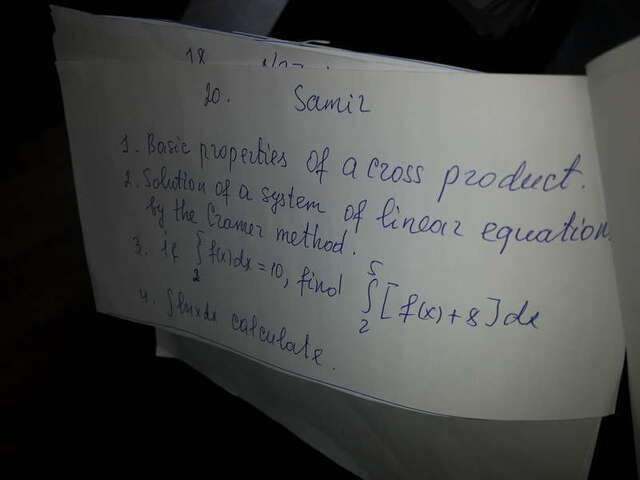 18
20. Samir
1. Basic properties of a cross product.
2. Solution of a system of linear equation
by the Cramer method.
3. If ∫₂⁵ f(x)dx = 10, find ∫₂⁵ [f(x)+8]dx
4. ∫lnxdx calculate.